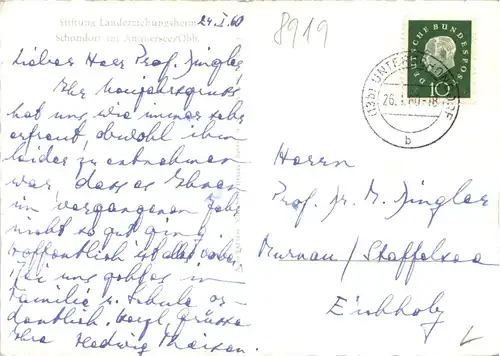 Stiftung Landerziehungsheim
Schondorf am Ammersee/Obb.
24.I.60
8919
Lieber Herr Prof. Dingler,
Ihr Neujahrsgruss
hat uns wie immer sehr
erfreut, obwohl ihm
leider zu entnehmen
war, dass es Ihnen
im vergangenen Jahr
nicht so gut ging.
Hoffentlich ist das vorbei.
Bei uns geht es in
Familie u. Schule or-
dentlich. Herzl. Grüsse
Ihre Hedwig
DEUTSCHE BUNDESPOST
10
(13b) UNTER
26.1.60-18
b
Herrn
Prof. Dr. M. Dingler
Murnau/Staffelsee
Eichholz